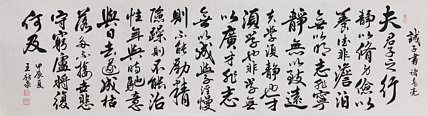 誡子書 諸葛亮
夫君子之行
靜以脩身儉以
養德非澹泊
無以明志非寧
靜無以致遠
夫學須靜也才
須學也非學無
以廣才非志
無以成學淫慢
則不能勵精
險躁則不能冶
性年與時馳意
與日去遂成枯
落多不接世悲
守窮廬將復
何及
甲辰夏
王